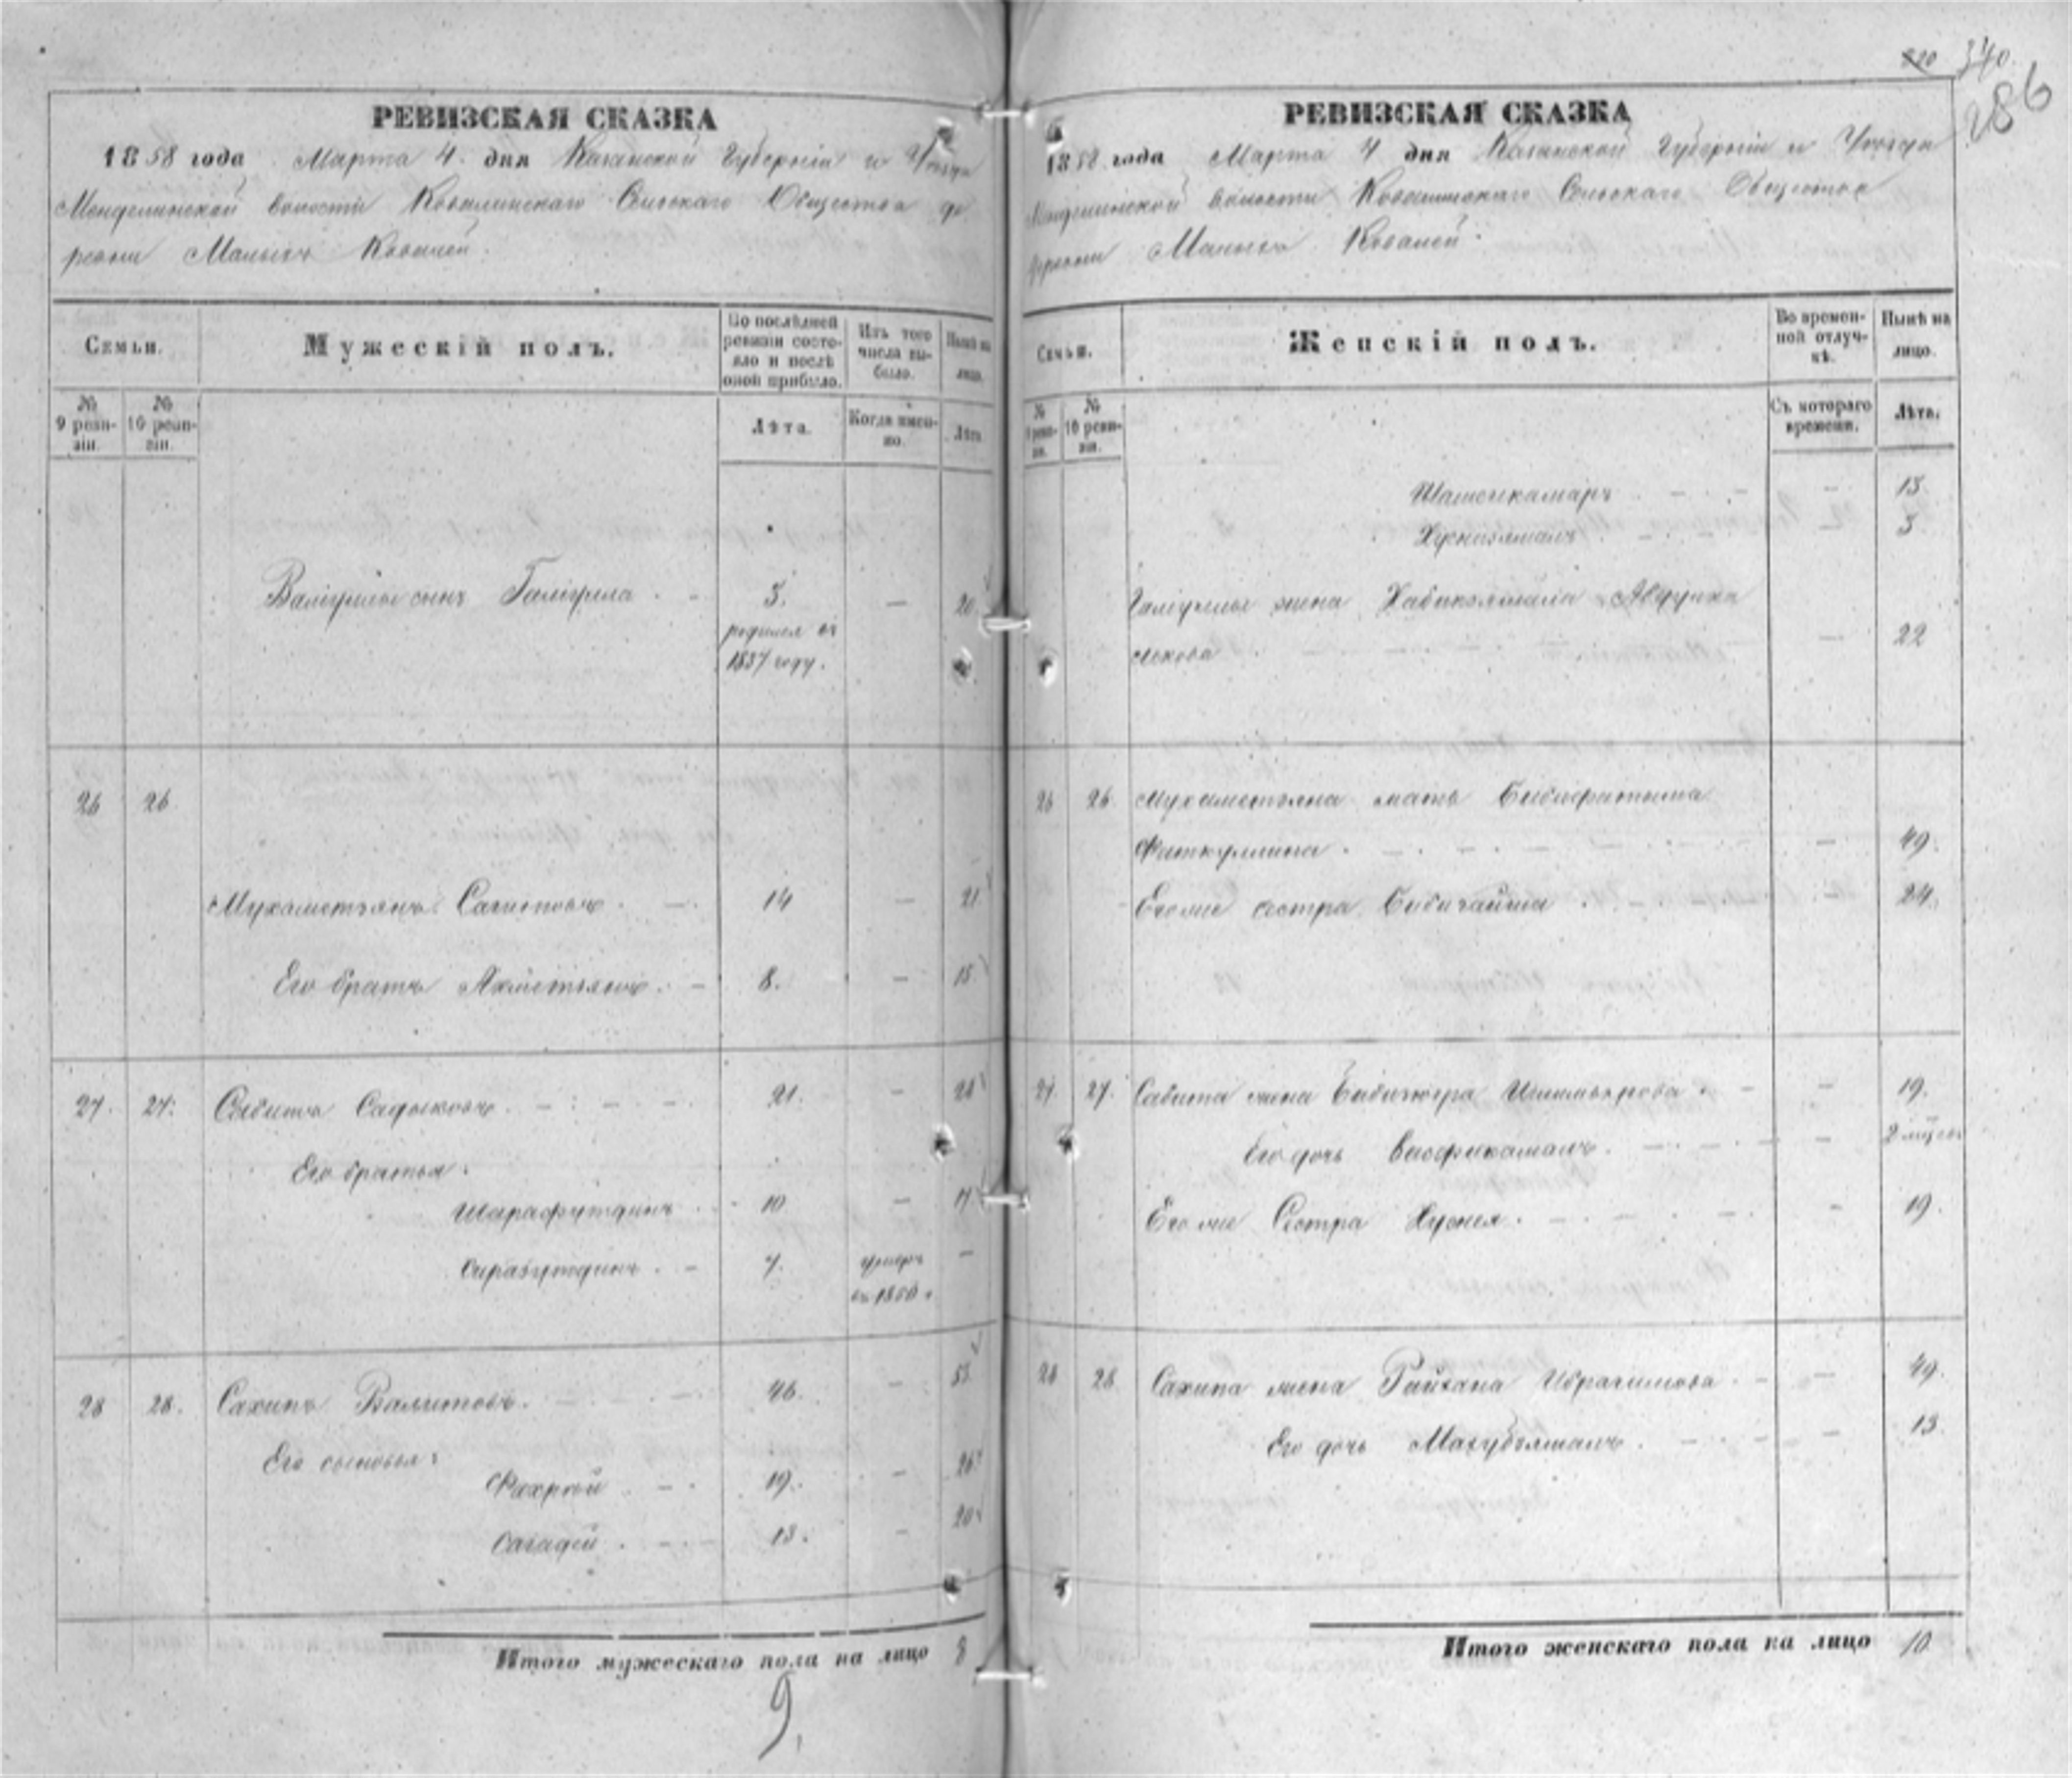 340
286
РЕВИЗСКАЯ СКАЗКА
1858 года Марта 4. дня Казанской Губерніи и Уезда
Менделинской волости Ковалинскаго Сельскаго Общества де
ревни Малыхъ Ковалей.
Семьи.
Мужескій полъ.
Во послѣдней ревизіи состояло и послѣ оной прибыло.
Изъ того числа выбыло.
Нынѣ на лицо.
№ 9 ревизіи.
№ 10 ревизіи.
Лѣта.
Когда именно.
Лѣта
Валіуллы сынъ Галіулла . - 3. — 20.
родился въ
1837 году.
26 26
Мухаметзянъ Сагитовъ . — . 14 — 21
Его братъ Ахметзянъ . — 8. — 15
27. 27. Сабитъ Садыковъ . — 21. — 28
Его братья:
Шарафутдинъ 10 — 17
Сиразутдинъ . — 7. умеръ —
въ 1850 г.
28 28. Сахипъ Валитовъ. 46. — 53
Его сыновья:
Фахрий — . 19. — 26
Сагадей . — 13. — 20
Итого мужескаго пола на лицо 8
9.
РЕВИЗСКАЯ СКАЗКА
1858 года Марта 4 дня Казанской Губерніи и Уезда
Менделинской волости Ковалинскаго Сельскаго Общества
деревни Малыхъ Ковалей.
Семьи.
Женскій полъ.
Во временной отлучкѣ.
Нынѣ на лицо.
№ 9 ревизіи.
№ 10 ревизіи.
Съ котораго времени.
Лѣта.
Шамсикамаръ . — . — — 13.
Хуснизямалъ — 3.
Галіуллы жена Хабибзямала Абдулха
ликова — 22
26 26. Мухаметзяна мать Бибифатыма
Фаткуллина . — 49.
Его же сестра Бибигайша . — 24.
27. 27. Сабита жена Бибизюгра Ишмяхрова . — — 19.
Его дочь . — — 2 мѣсяц.
Его же Сестра Хусня . — — 19.
28 28 Сахипа жена Райхана Ибрагимова . — — 49.
Его дочь Махубзямалъ . — — 13.
Итого женскаго пола на лицо 10